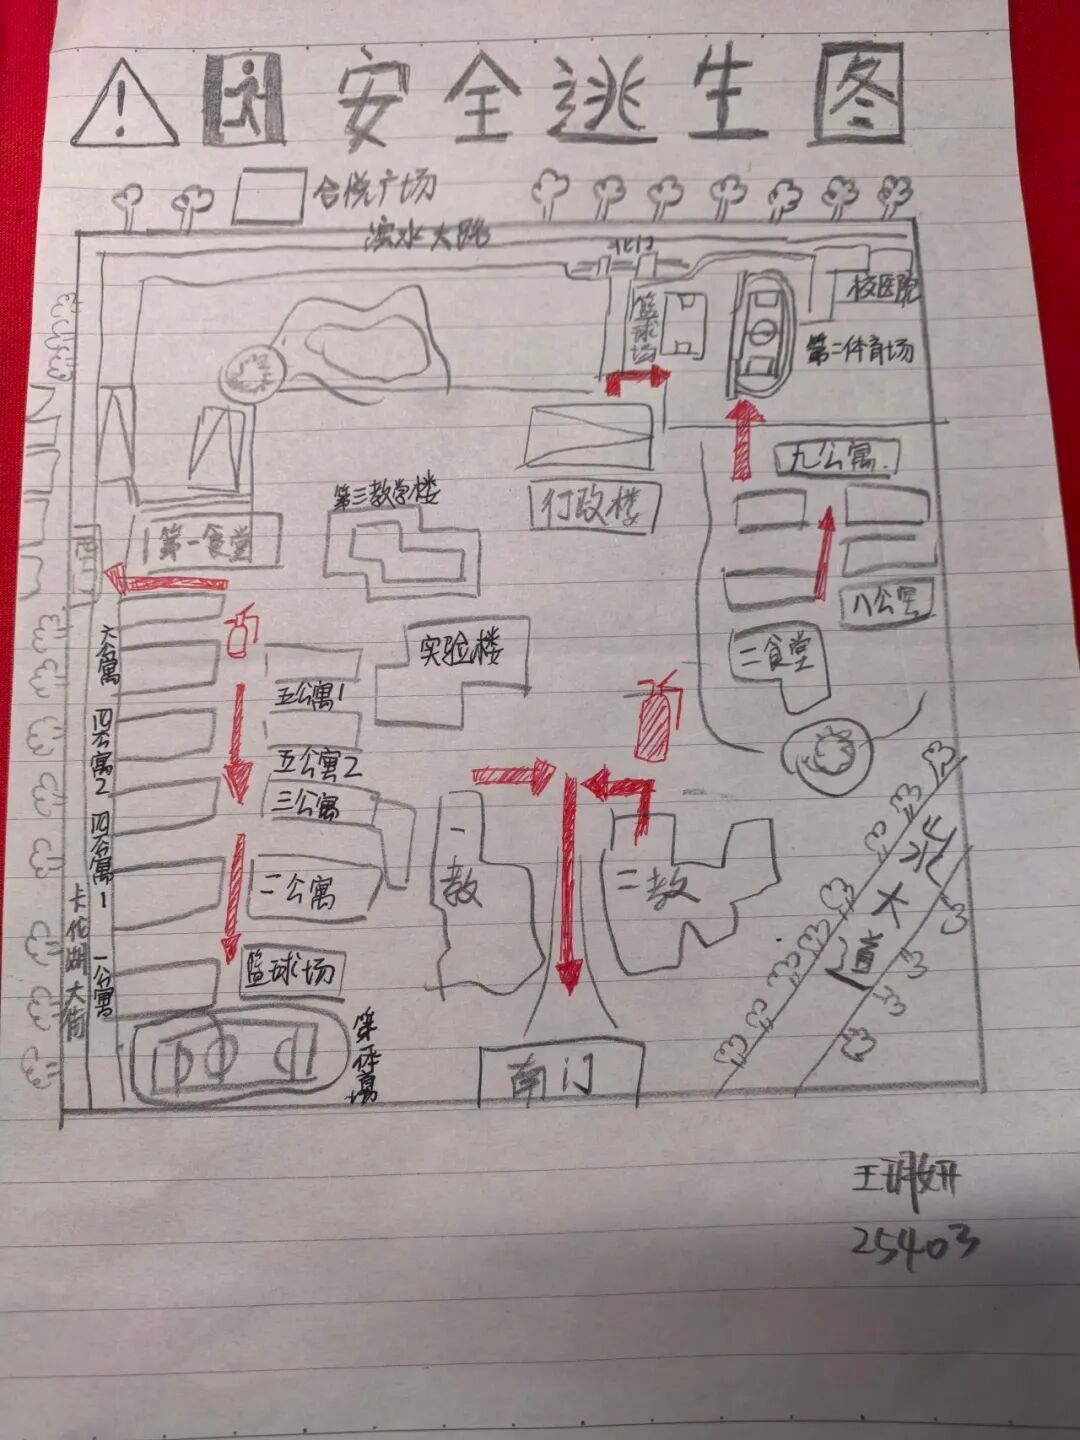 安全逃生图
合悦广场
滨水大路
北门
篮球场
校医院
第二体育场
九公寓
行政楼
第三教学楼
第一食堂
西门
八公寓
二食堂
实验楼
六公寓
五公寓1
四公寓2
五公寓2
三公寓
四公寓1
二公寓
一教
二教
卡伦湖大街
一公寓
篮球场
第一体育场
南门
大道
25403